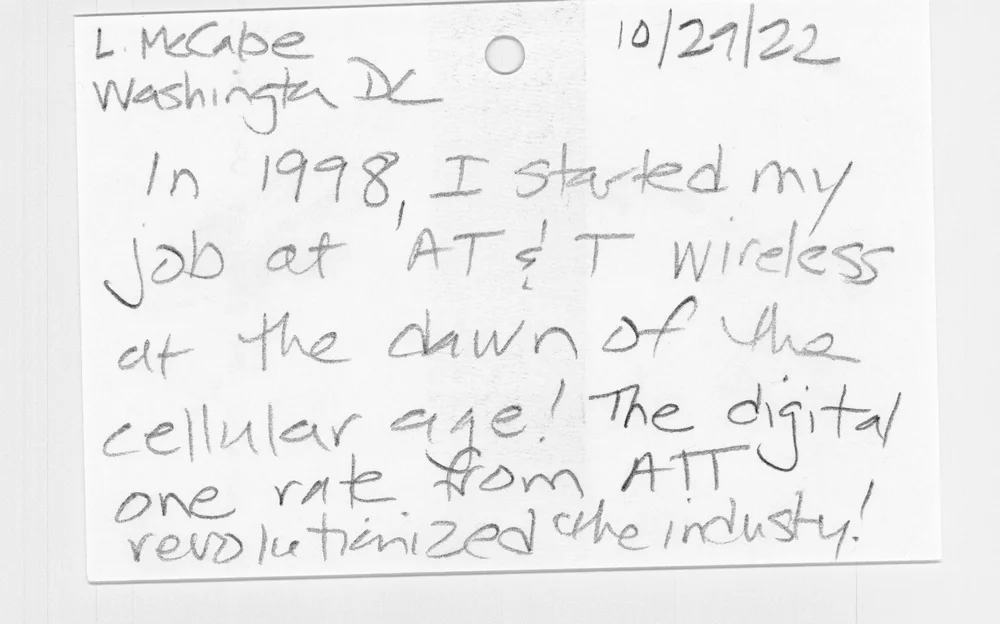 L. McCabe 10/29/22
Washington DC
In 1998, I started my
job at AT&T wireless
at the dawn of the
cellular age! The digital
one rate from ATT
revolutionized the industy!